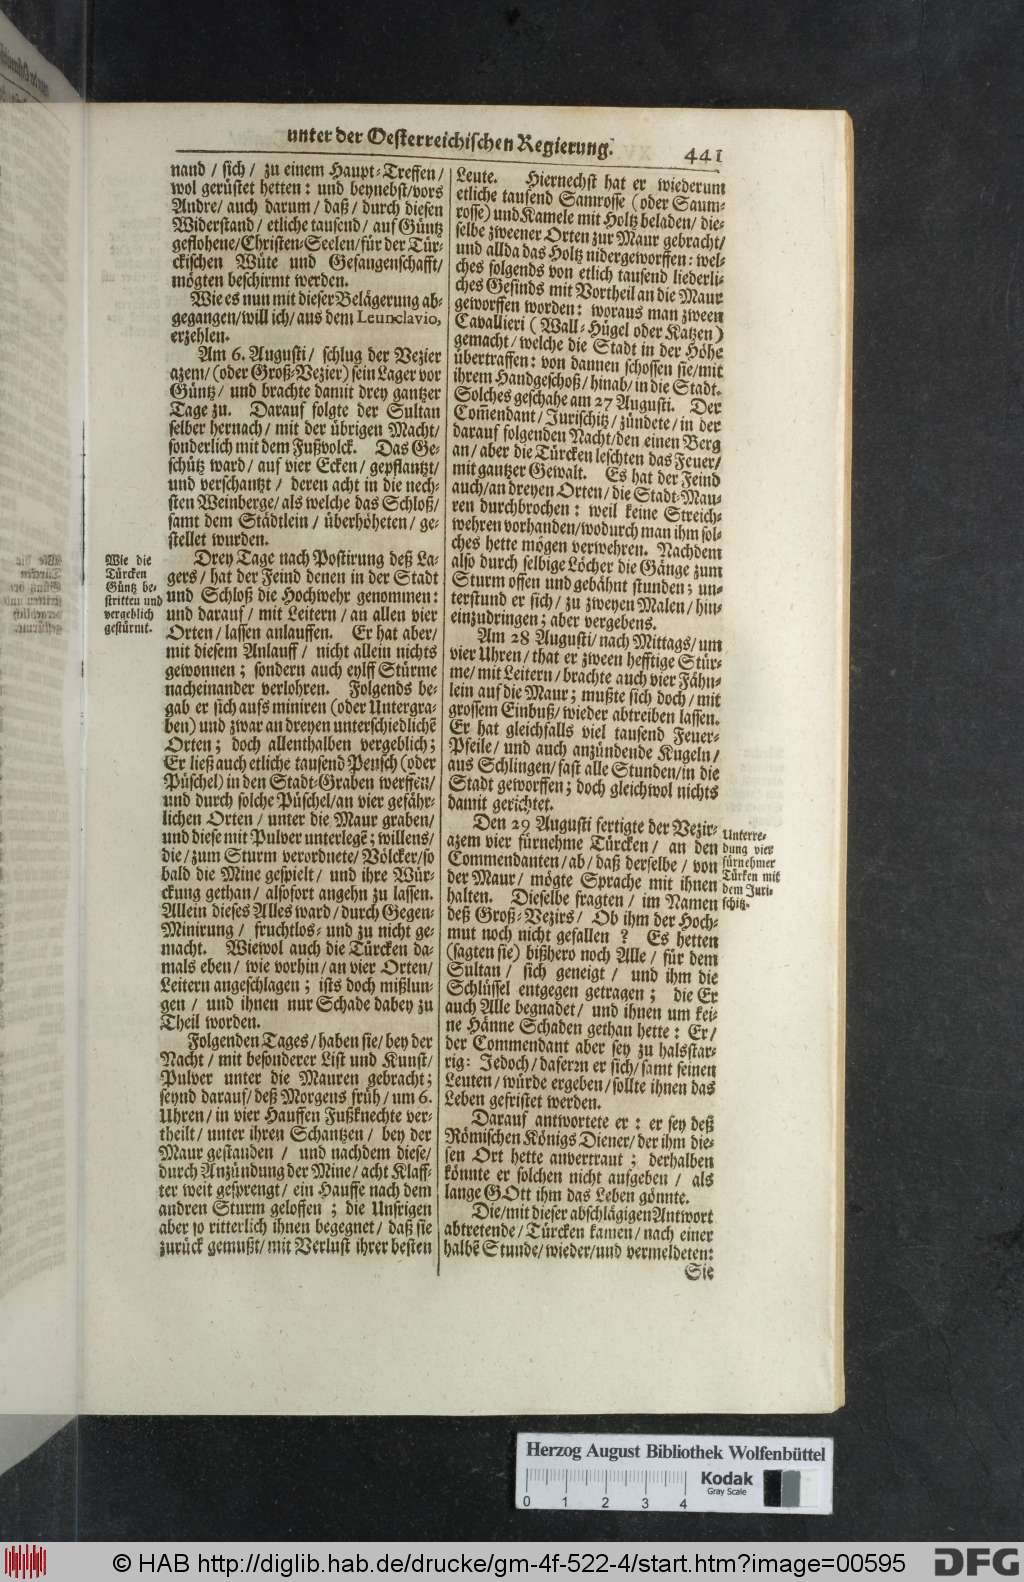 unter der Oesterreichischen Regierung.
441
nand / sich / zu einem Haupt-Treffen/
wol gerüstet hetten: und beynebst/vors
Andre/ auch darum/ daß/ durch diesen
Widerstand/ etliche tausend/ auf Güntz
geflohene/Christen-Seelen/für der Tür-
ckischen Wüte und Gefangenschafft/
mögten beschirmt werden.
Wie es nun mit dieser Belägerung ab-
gegangen/will ich/aus dem Leunclavio,
erzehlen.
Am 6. Augusti/ schlug der Vezier
azem/(oder Groß-Vezier)sein Lager vor
Güntz/ und brachte damit drey gantzer
Tage zu. Darauf folgte der Sultan
selber hernach/ mit der übrigen Macht/
sonderlich mit dem Fußvolck. Das Ge-
schütz ward/ auf vier Ecken/ gepflantzt/
und verschantzt / deren acht in die nech-
sten Weinberge/als welche das Schloß/
samt dem Städtlein / überhöheten/ ge-
stellet wurden.
Wie die
Türcken
Güntz be-
stritten und
vergeblich
gestürmt.
Drey Tage nach Postirung deß La-
gers/ hat der Feind denen in der Stadt
und Schloß die Hochwehr genommen:
und darauf/ mit Leitern/ an allen vier
Orten/ lassen anlauffen. Er hat aber/
mit diesem Anlauff/ nicht allein nichts
gewonnen; sondern auch eylff Stürme
nacheinander verlohren. Folgends be-
gab er sich aufs miniren (oder Untergra-
ben) und zwar an dreyen unterschiedlichē
Orten; doch allenthalben vergeblich;
Er ließ auch etliche tausend Peusch (oder
Püschel) in den Stadt-Graben werffen/
und durch solche Püschel/an vier gefähr-
lichen Orten/ unter die Maur graben/
und diese mit Pulver unterlegē; willens/
die/zum Sturm verordnete/ Völcker/so
bald die Mine gespielt/ und ihre Wür-
ckung gethan/ alsofort angehn zu lassen.
Allein dieses Alles ward/durch Gegen-
Minirung/ fruchtlos- und zu nicht ge-
macht. Wiewol auch die Türcken da-
mals eben/ wie vorhin/an vier Orten/
Leitern angeschlagen; ists doch mißlun-
gen/ und ihnen nur Schade dabey zu
Theil worden.
Folgenden Tages/haben sie/bey der
Nacht/ mit besonderer List und Kunst/
Pulver unter die Mauren gebracht;
seynd darauf/deß Morgens früh/um 6.
Uhren/in vier Hauffen Fußknechte ver-
theilt/ unter ihren Schantzen/ bey der
Maur gestanden / und nachdem diese/
durch Anzündung der Mine/ acht Klaff-
ter weit gesprengt/ ein Hauffe nach dem
andren Sturm geloffen ; die Unsrigen
aber so ritterlich ihnen begegnet/ daß sie
zurück gemußt/mit Verlust ihrer besten
Leute. Hiernechst hat er wiederum
etliche tausend Samrosse (oder Saum-
rosse) und Kamele mit Holtz beladen/ die-
selbe zweener Orten zur Maur gebracht/
und allda das Holtz nidergeworffen: wel-
ches folgends von etlich tausend liederli-
ches Gesinds mit Vortheil an die Maur
geworffen worden: woraus man zween
Cavallieri (Wall-Hügel oder Katzen)
gemacht/welche die Stadt in der Höhe
übertraffen: von dannen schossen sie/mit
ihrem Handgeschoß/hinab/in die Stadt.
Solches geschahe am 27 Augusti. Der
Com̄endant/Jurischitz/zündete/in der
darauf folgenden Nacht/den einen Berg
an/ aber die Türcken leschten das Feuer/
mit gantzer Gewalt. Es hat der Feind
auch/an dreyen Orten/die Stadt-Mau-
ren durchbrochen: weil keine Streich-
wehren vorhanden/wodurch man ihm sol-
ches hette mögen verwehren. Nachdem
also durch selbige Löcher die Gänge zum
Sturm offen und gebähnt stunden; un-
terstund er sich/zu zweyen Malen/hin-
einzudringen; aber vergebens.
Am 28 Augusti/nach Mittags/um
vier Uhren/that er zween hefftige Stür-
me/mit Leitern/ brachte auch vier Fähn-
lein auf die Maur; mußte sich doch/mit
grossem Einbuß/wieder abtreiben lassen.
Er hat gleichfalls viel tausend Feuer-
Pfeile/ und auch anzündende Kugeln/
aus Schlingen/fast alle Stunden/in die
Stadt geworffen; doch gleichwol nichts
damit gerichtet.
Unterre-
dung vier
fürnehmer
Türken mit
dem Juri-
schitz.
Den 29 Augusti fertigte der Vezir-
azem vier fürnehme Türcken/ an den
Commendanten/ab/ daß derselbe / von
der Maur/ mögte Sprache mit ihnen
halten. Dieselbe fragten/ im Namen
deß Groß-Vezirs/ Ob ihm der Hoch-
mut noch nicht gefallen ? Es hetten
(sagten sie) bißhero noch Alle/ für dem
Sultan/ sich geneigt/ und ihm die
Schlüssel entgegen getragen; die Er
auch Alle begnadet/ und ihnen um kei-
ne Hänne Schaden gethan hette: Er/
der Commendant aber sey zu halsstar-
rig: Jedoch/ dafern er sich/samt seinen
Leuten/würde ergeben/sollte ihnen das
Leben gefristet werden.
Darauf antwortete er: er sey deß
Römischen Königs Diener/der ihm die-
sen Ort hette anvertraut; derhalben
könnte er solchen nicht aufgeben/ als
lange GOtt ihm das Leben gönnte.
Die/mit dieser abschlägigen Antwort
abtretende/Türcken kamen/nach einer
halbē Stunde/wieder/und vermeldeten:
Sie
Herzog August Bibliothek Wolfenbüttel
0 1 2 3 4
Kodak
Gray Scale
© HAB http://diglib.hab.de/drucke/gm-4f-522-4/start.htm?image=00595
DFG